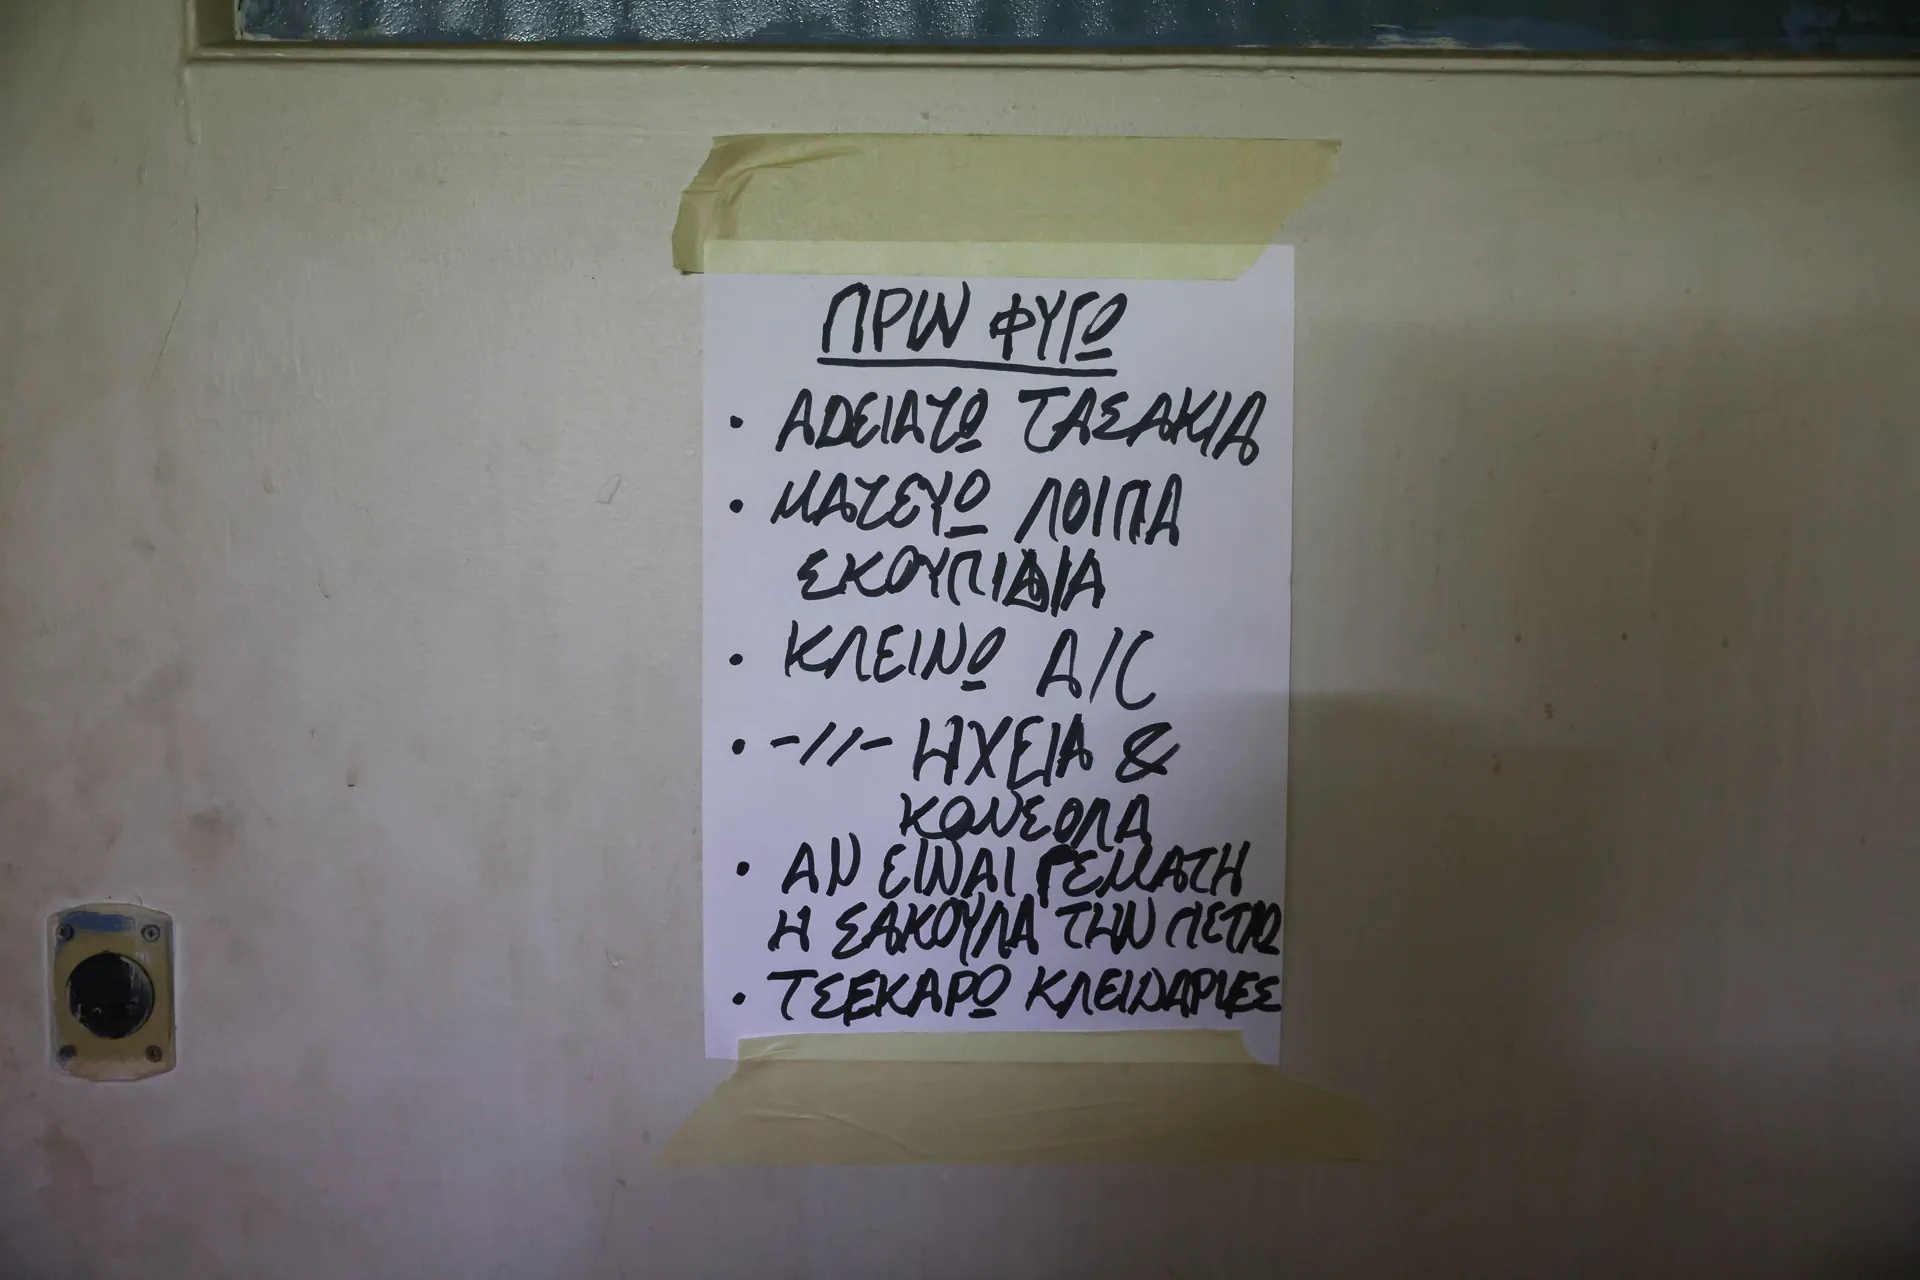 ΠΡΙΝ ΦΥΓΩ
• ΑΔΕΙΑΖΩ ΤΑΣΑΚΙΑ
• ΜΑΖΕΥΩ ΛΟΙΠΑ
ΣΚΟΥΠΙΔΙΑ
• ΚΛΕΙΝΩ A/C
• -//- ΗΧΕΙΑ &
ΚΟΝΣΟΛΑ
• ΑΝ ΕΙΝΑΙ ΓΕΜΑΤΗ
Η ΣΑΚΟΥΛΑ ΤΗΝ ΠΕΤΑΩ
• ΤΣΕΚΑΡΩ ΚΛΕΙΔΑΡΙΕΣ